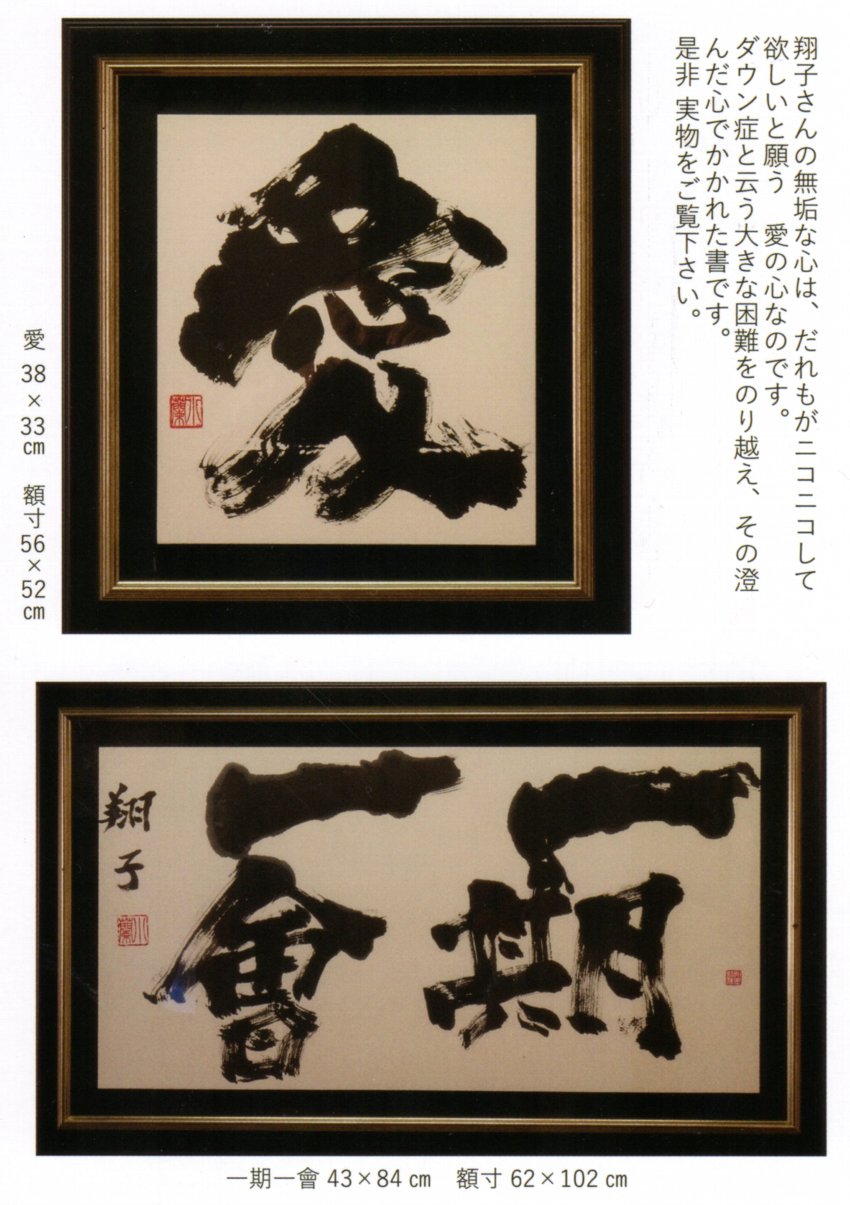 翔子さんの無垢な心は、だれもがニコニコして
欲しいと願う　愛の心なのです。
ダウン症と云う大きな困難をのり越え、その澄
んだ心でかかれた書です。
是非 実物をご覧下さい。
愛
愛 38×33㎝　額寸56×52㎝
一期
一會
翔子
一期一會 43×84㎝　額寸 62×102㎝